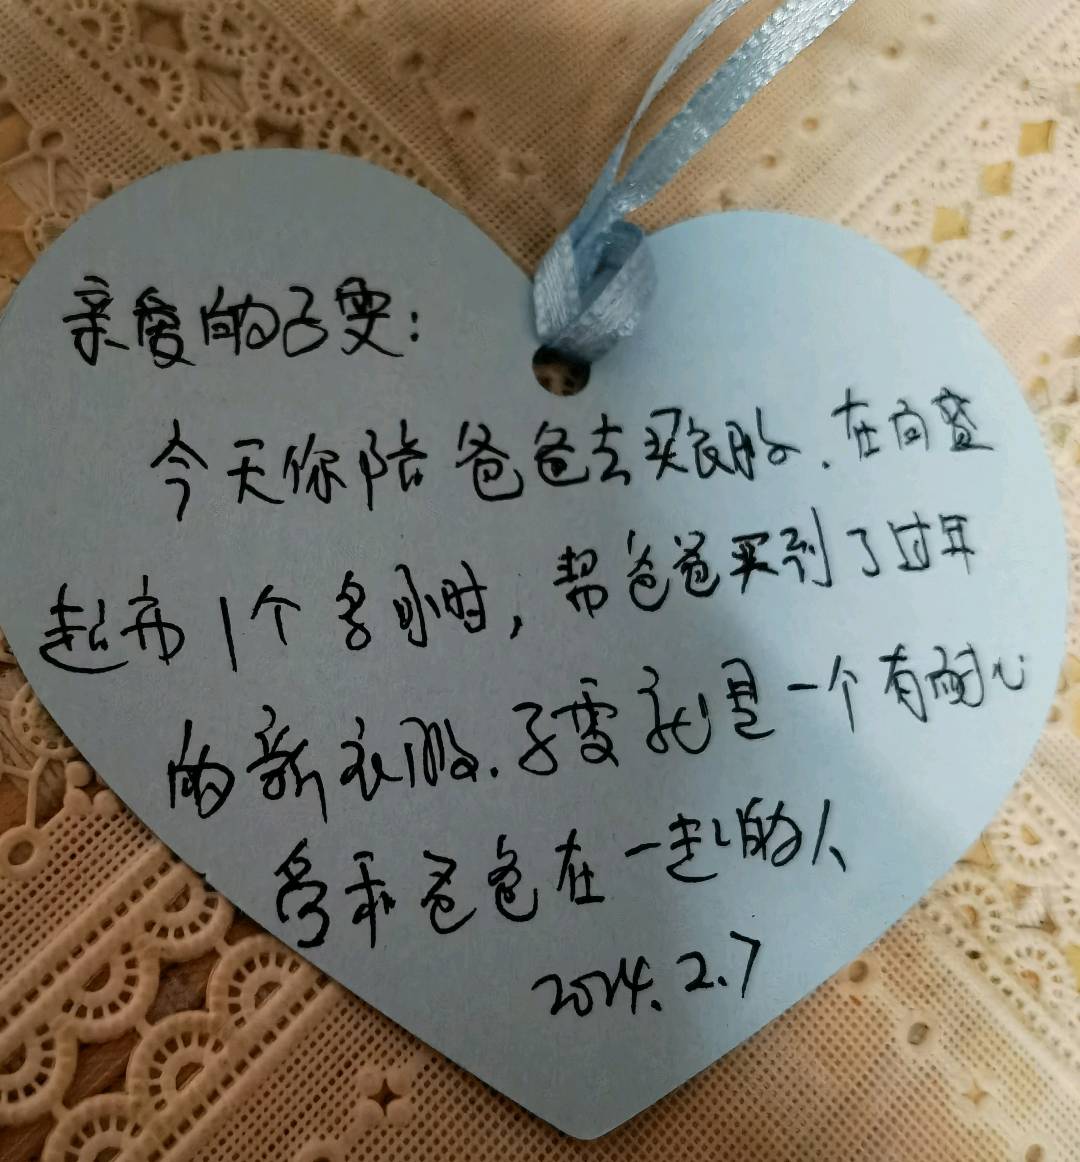 亲爱的子雯:
今天你陪爸爸去买衣服.在向盛
超市1个多小时,帮爸爸买到了过年
的新衣服.子雯就是一个有耐心
爱和爸爸在一起的人
2024.2.7